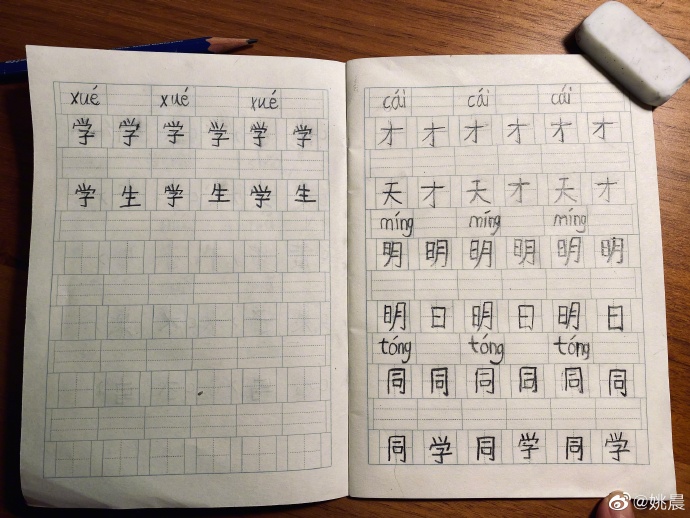 xué xué xué
学 学 学 学 学 学
学 生 学 生 学 生
cái cái cái
才 才 才 才 才 才
天 才 天 才 天 才
míng míng míng
明 明 明 明 明 明
明 日 明 日 明 日
tóng tóng tóng
同 同 同 同 同 同
同 学 同 学 同 学
@姚晨